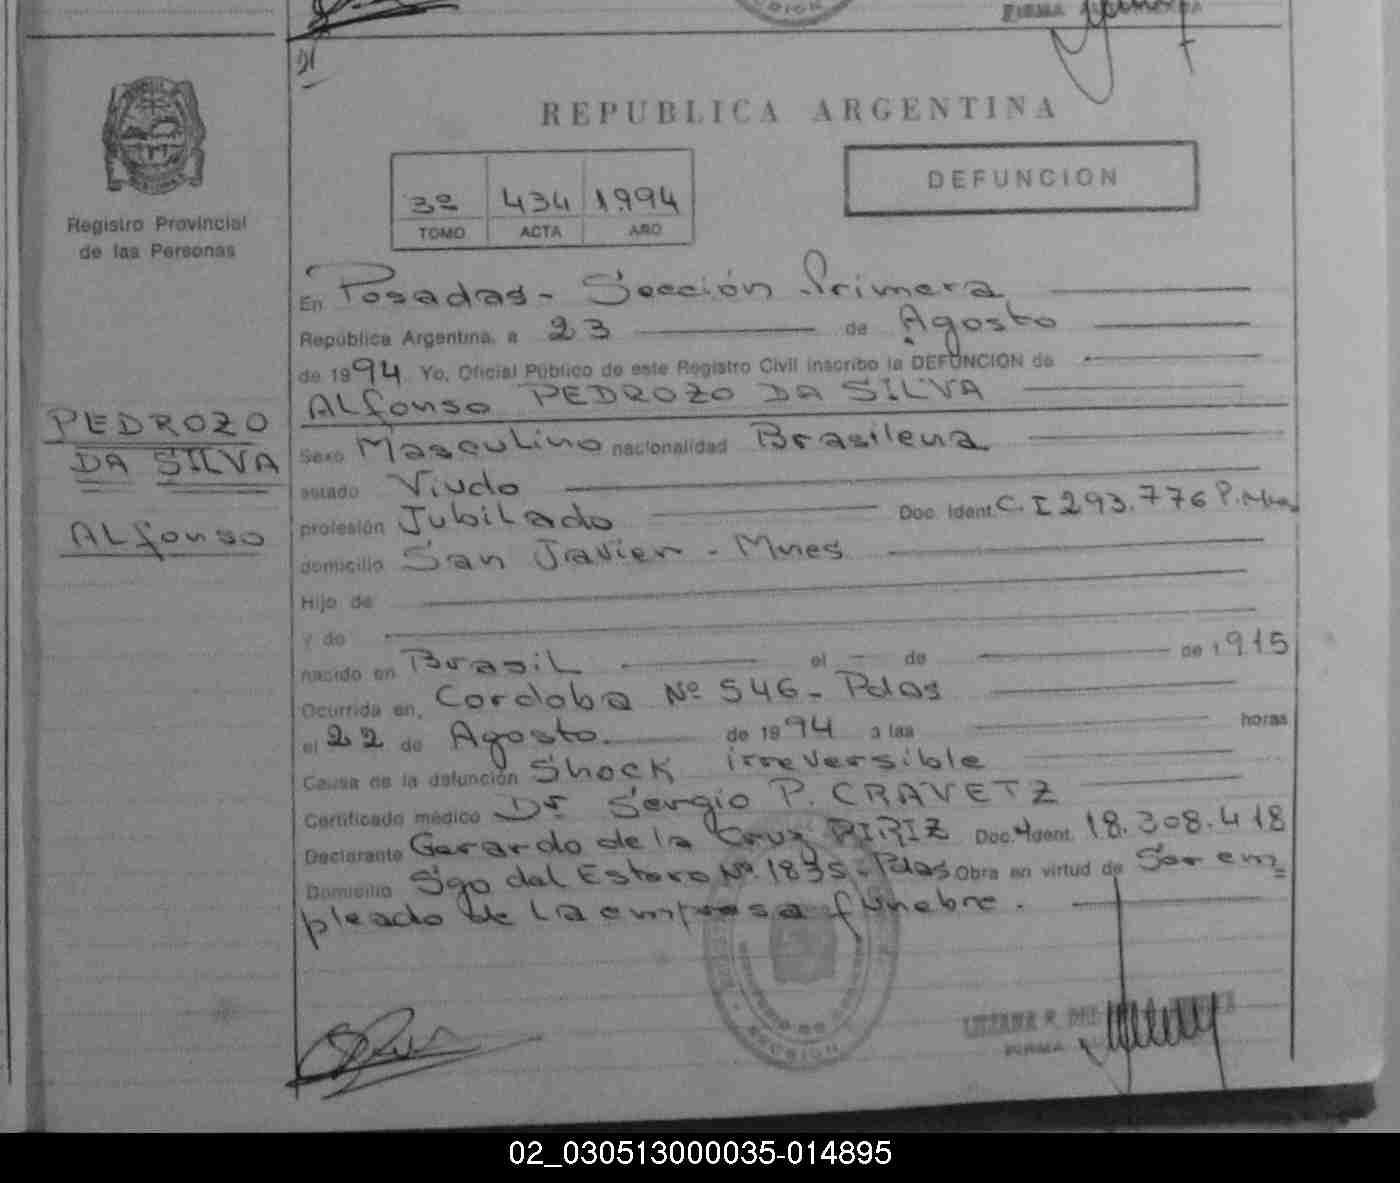 REPUBLICA ARGENTINA
Registro Provincial
de las Personas
3º 434 1994
TOMO ACTA AÑO
DEFUNCION
PEDROZO
DA SILVA
ALfonso
En Posadas - Sección Primera
República Argentina, a 23 de Agosto
de 1994 Yo, Oficial Público de este Registro Civil inscribo la DEFUNCION de
ALfonso PEDROZO DA SILVA
Sexo Masculino nacionalidad Brasilena
estado Viudo
profesión Jubilado Doc. Ident. C. I 293.776 P. Mnes
domicilio San Javier - Mnes
Hijo de
y de
nacido en Brasil el - de de 1915
Ocurrida en, Cordoba Nº 546 - Pdas
el 22 de Agosto. de 1994 a las horas
Causa de la defunción Shock irreversible
Certificado médico Dr Sergio P. CRAVETZ
Declarante Gerardo de la Cruz RIRIZ Doc. Ident. 18.308.418
Domicilio Sgo del Estero Nº 1835 - Pdas Obra en virtud de Ser em=
pleado de La empresa funebre.
FIRMA
02_030513000035-014895